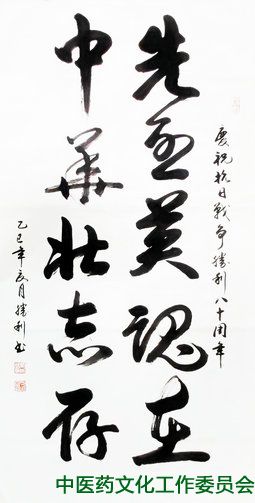 慶祝抗日戰爭勝利八十周年
先烈英魂在
中華壯志存
乙巳年夏月勝利书
中医药文化工作委员会